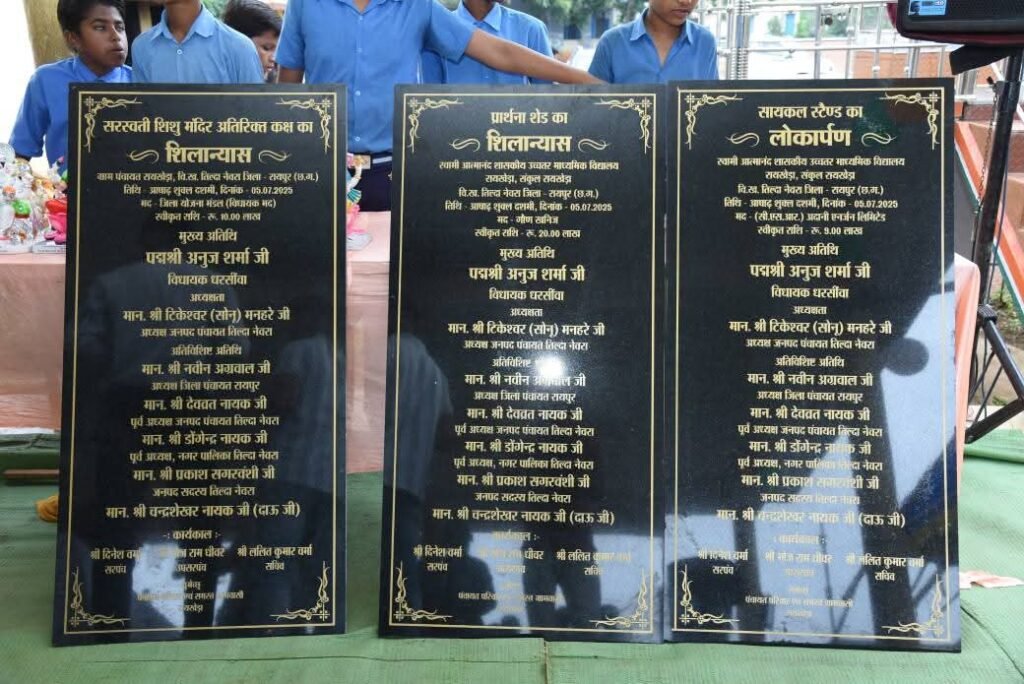 सरस्वती शिशु मंदिर अतिरिक्त कक्ष का
शिलान्यास
ग्राम पंचायत रायखेड़ा, वि.ख. तिल्दा नेवरा जिला - रायपुर (छ.ग.)
तिथि - आषाढ़ शुक्ल दशमी, दिनांक - 05.07.2025
मद - जिला योजना मंडल (विधायक मद)
स्वीकृत राशि - रू. 10.00 लाख
मुख्य अतिथि
पद्मश्री अनुज शर्मा जी
विधायक धरसींवा
अध्यक्षता
मान. श्री टिकेश्वर (सोनू) मनहरे जी
अध्यक्ष जनपद पंचायत तिल्दा नेवरा
अतिविशिष्ट अतिथि
मान. श्री नवीन अग्रवाल जी
अध्यक्ष जिला पंचायत रायपुर
मान. श्री देवव्रत नायक जी
पूर्व अध्यक्ष जनपद पंचायत तिल्दा नेवरा
मान. श्री डोंगेन्द्र नायक जी
पूर्व अध्यक्ष, नगर पालिका तिल्दा नेवरा
मान. श्री प्रकाश सगरवंशी जी
जनपद सदस्य तिल्दा नेवरा
मान. श्री चन्द्रशेखर नायक जी (दाऊ जी)
-: कार्यकाल :-
श्री दिनेश वर्मा श्री राम धीवर श्री ललित कुमार वर्मा
सरपंच उपसरपंच सचिव
रायखेड़ा
प्रार्थना शेड का
शिलान्यास
स्वामी आत्मानंद शासकीय उच्चतर माध्यमिक विद्यालय
रायखेड़ा, संकुल रायखेड़ा
वि.ख. तिल्दा नेवरा जिला - रायपुर (छ.ग.)
तिथि - आषाढ़ शुक्ल दशमी, दिनांक - 05.07.2025
मद - गौण खनिज
स्वीकृत राशि - रू. 20.00 लाख
मुख्य अतिथि
पद्मश्री अनुज शर्मा जी
विधायक धरसींवा
अध्यक्षता
मान. श्री टिकेश्वर (सोनू) मनहरे जी
अध्यक्ष जनपद पंचायत तिल्दा नेवरा
अतिविशिष्ट
मान. श्री नवीन अग्रवाल जी
अध्यक्ष जिला पंचायत रायपुर
मान. श्री देवव्रत नायक जी
पूर्व अध्यक्ष जनपद पंचायत तिल्दा नेवरा
मान. श्री डोंगेन्द्र नायक जी
पूर्व अध्यक्ष, नगर पालिका तिल्दा नेवरा
मान. श्री प्रकाश सगरवंशी जी
जनपद सदस्य तिल्दा नेवरा
मान. श्री चन्द्रशेखर नायक जी (दाऊ जी)
-: कार्यकाल :-
श्री दिनेश वर्मा राम धीवर श्री ललित कुमार वर्मा
सरपंच सचिव
सायकल स्टैण्ड का
लोकार्पण
स्वामी आत्मानंद शासकीय उच्चतर माध्यमिक विद्यालय
रायखेड़ा, संकुल रायखेड़ा
वि.ख. तिल्दा नेवरा जिला - रायपुर (छ.ग.)
तिथि - आषाढ़ शुक्ल दशमी, दिनांक - 05.07.2025
मद - (सी.एस.आर.) अदानी एनर्जन लिमिटेड
स्वीकृत राशि - रू. 9.00 लाख
मुख्य अतिथि
पद्मश्री अनुज शर्मा जी
विधायक धरसींवा
अध्यक्षता
मान. श्री टिकेश्वर (सोनू) मनहरे जी
अध्यक्ष जनपद पंचायत तिल्दा नेवरा
अतिविशिष्ट अतिथि
मान. श्री नवीन अग्रवाल जी
अध्यक्ष जिला पंचायत रायपुर
मान. श्री देवव्रत नायक जी
पूर्व अध्यक्ष जनपद पंचायत तिल्दा नेवरा
मान. श्री डोंगेन्द्र नायक जी
पूर्व अध्यक्ष, नगर पालिका तिल्दा नेवरा
मान. श्री प्रकाश सगरवंशी जी
जनपद सदस्य तिल्दा नेवरा
मान. श्री चन्द्रशेखर नायक जी (दाऊ जी)
-: कार्यकाल :-
श्री दिनेश वर्मा श्री भोज राम धीवर श्री ललित कुमार वर्मा
सरपंच सचिव